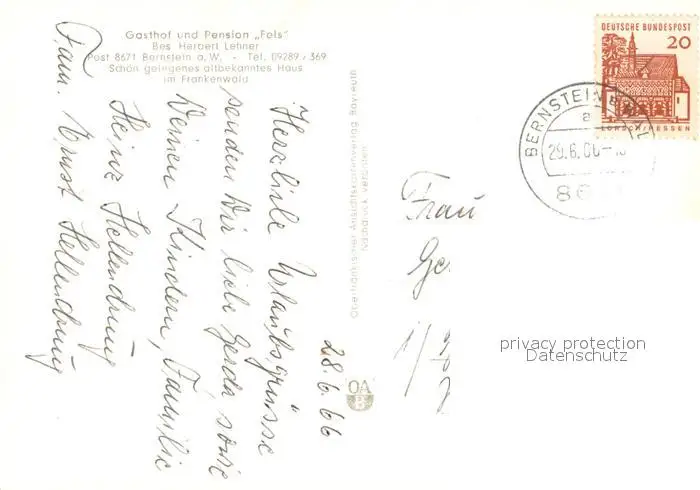 Gasthof und Pension „Fels"
Bes Herbert Lehner
Post 8671 Bernstein a. W. - Tel. 09289/369
Schön gelegenes altbekanntes Haus
im Frankenwald
28.6.66
Herzliche Urlaubsgrüsse
senden Dir liebe Gerda sowie
Deinen Kindern, Familie
Heinz Hellendrung
Fam. Ernst Hellendrung
Oberfränkischer Ansichtskartenverlag Bayreuth
Nachdruck verboten
OA
B
DEUTSCHE BUNDESPOST
20
LORSCH/HESSEN
BERNSTEIN
a
29.6.66
Frau
privacy protection
Datenschutz